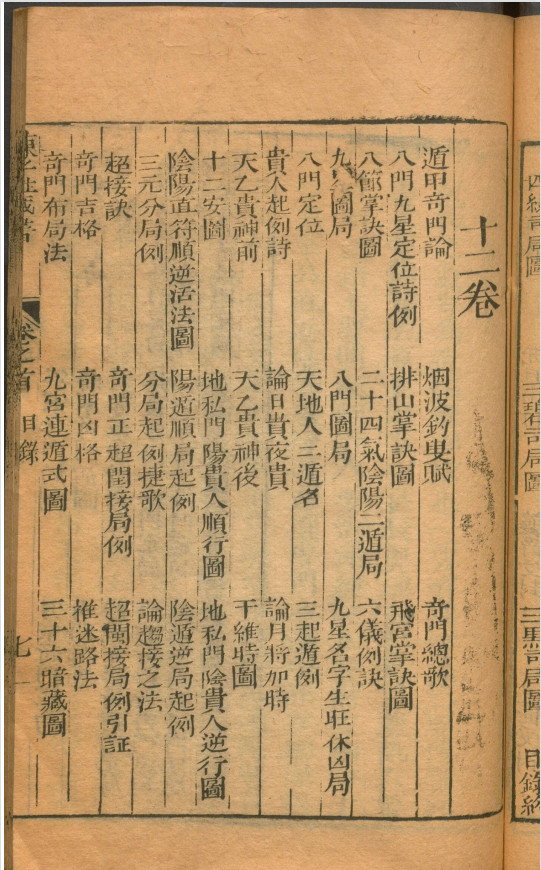 三碧奇局圖 目錄終
十二卷
遁甲奇門論 烟波釣叟賦 奇門總歌
八門九星定位詩例 排山掌訣圖 飛宮掌訣圖
八節掌訣圖 二十四氣陰陽二遁局 六儀例訣
九星圖局 八門圖局 九星名字生旺休囚局
八門定位 天地人三遁名 三起遁例
貴人起例詩 論日貴夜貴 論月將加時
天乙貴神前 天乙貴神後 干維時圖
十二安圖 地私門陽貴人順行圖 地私門陰貴人逆行圖
陰陽直符順逆活法圖 陽遁順局起例 陰遁逆局起例
三元分局例 分局起例捷歌 論趨接之法
超接訣 奇門正超閏接局例 超閏接局例引証
奇門吉格 奇門凶格 推迷路法
奇門布局法 九宮連遁式圖 三十六暗藏圖
卷之首 目錄 七